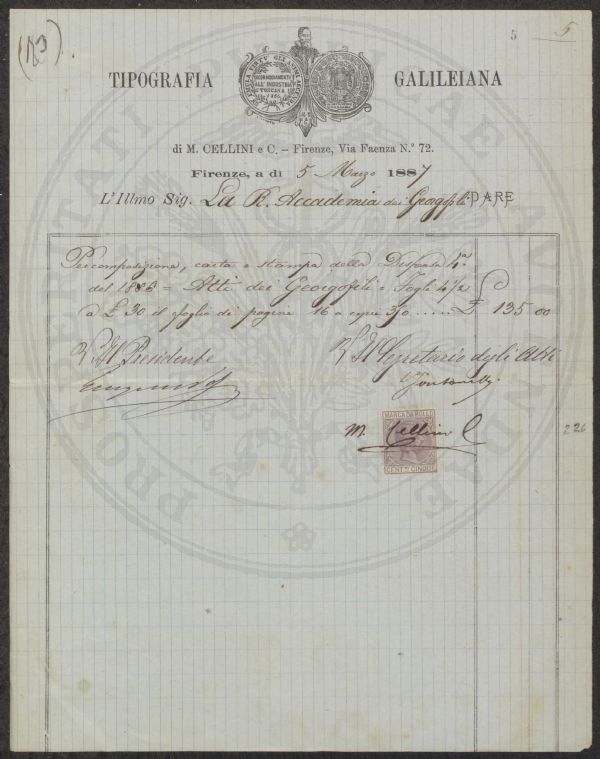 (153).
5
5
TIPOGRAFIA GALILEIANA
di M. CELLINI e C. – Firenze, Via Faenza N.º 72.
Firenze, a dì 5 Marzo 1887
L'Illmo Sig. La R. Accademia dei Georgofili DARE
Per composizione, carta e stampa della Dispensa 4ª
del 1886 = Atti dei Georgofili = Fogli 4 1/2
a £ 30 il foglio di pagine 16 a copie 350 ..... £ 135 00
V.º Il Presidente
V.º Il Segretario degli Atti
M. Cellini C
MARCA DA BOLLO
CENT.MI CINQUE
226
PROSPERITATI PUBLICAE AUGENDAE